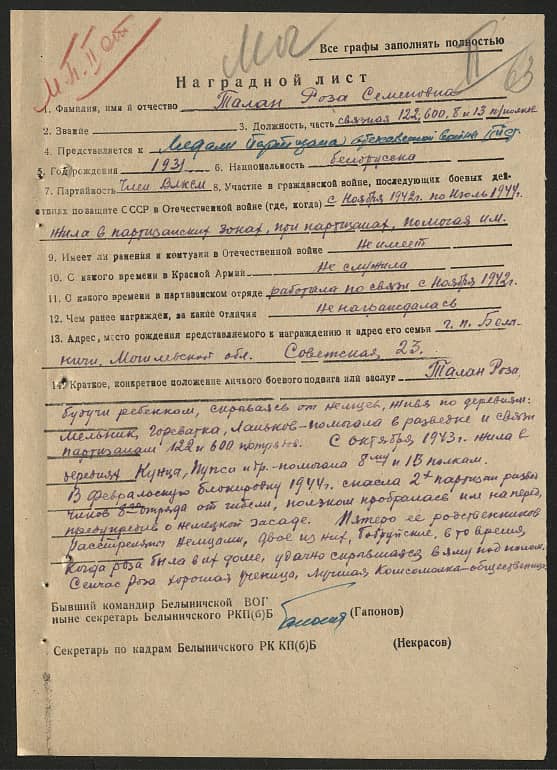 М.П. II ст.
Мог
Все графы заполнять полностью
П
63
Наградной лист
1. Фамилия, имя и отчество Талан Роза Семеновна
2. Звание 3. Должность, часть связная 122, 600, 8 и 13 п/полков
4. Представляется к Медали "Партизана отечественной войны" II ст.
5. Год рождения 1931 6. Национальность белорусска
7. Партийность Член ВЛКСМ 8. Участие в гражданской войне, последующих боевых дей-
ствиях по защите СССР в Отечественной войне (где, когда) с Ноября 1942г. по Июль 1944.
жила в партизанских зонах, при партизанах, помогая им.
9. Имеет ли ранения и контузии в Отечественной войне Не имеет
10. С какого времени в Красной Армии Не служила
11. С какого времени в партизанском отряде работала по связи с Ноября 1942г.
12. Чем ранее награжден, за какие отличия Не награждалась
13. Адрес, место рождения представляемого к награждению и адрес его семьи г.п. Белы-
ничи, Могилевской обл. Советская, 23.
14. Краткое, конкретное положение личного боевого подвига или заслуг Талан Роза,
будучи ребенком, скрываясь от немцев, живя по деревням:
Мельник, Гореватка, помогала в разведке и связи
партизанам 122 и 600 С октября 1943г. жила в
деревнях Кунца, Пупса и др. помогала 8му и 13 полкам.
В февральскую блокировку 1944г. спасла 2х партизан развед
чиков отряда от гибели, ползком пробралась к им на перед,
предупредив о немецкой засаде. Пятеро ее родственников
расстреляны немцами, двое из них, Бобруйские, в то время,
когда Роза была в их доме, удачно скрывшаяся в яму под полом.
Сейчас Роза хорошая ученица, лучшая комсомолка-общественница
Бывший командир Белыничской ВОГ
ныне секретарь Белыничского РКП(б)Б (Гапонов)
Секретарь по кадрам Белыничского РК КП(б)Б (Некрасов)